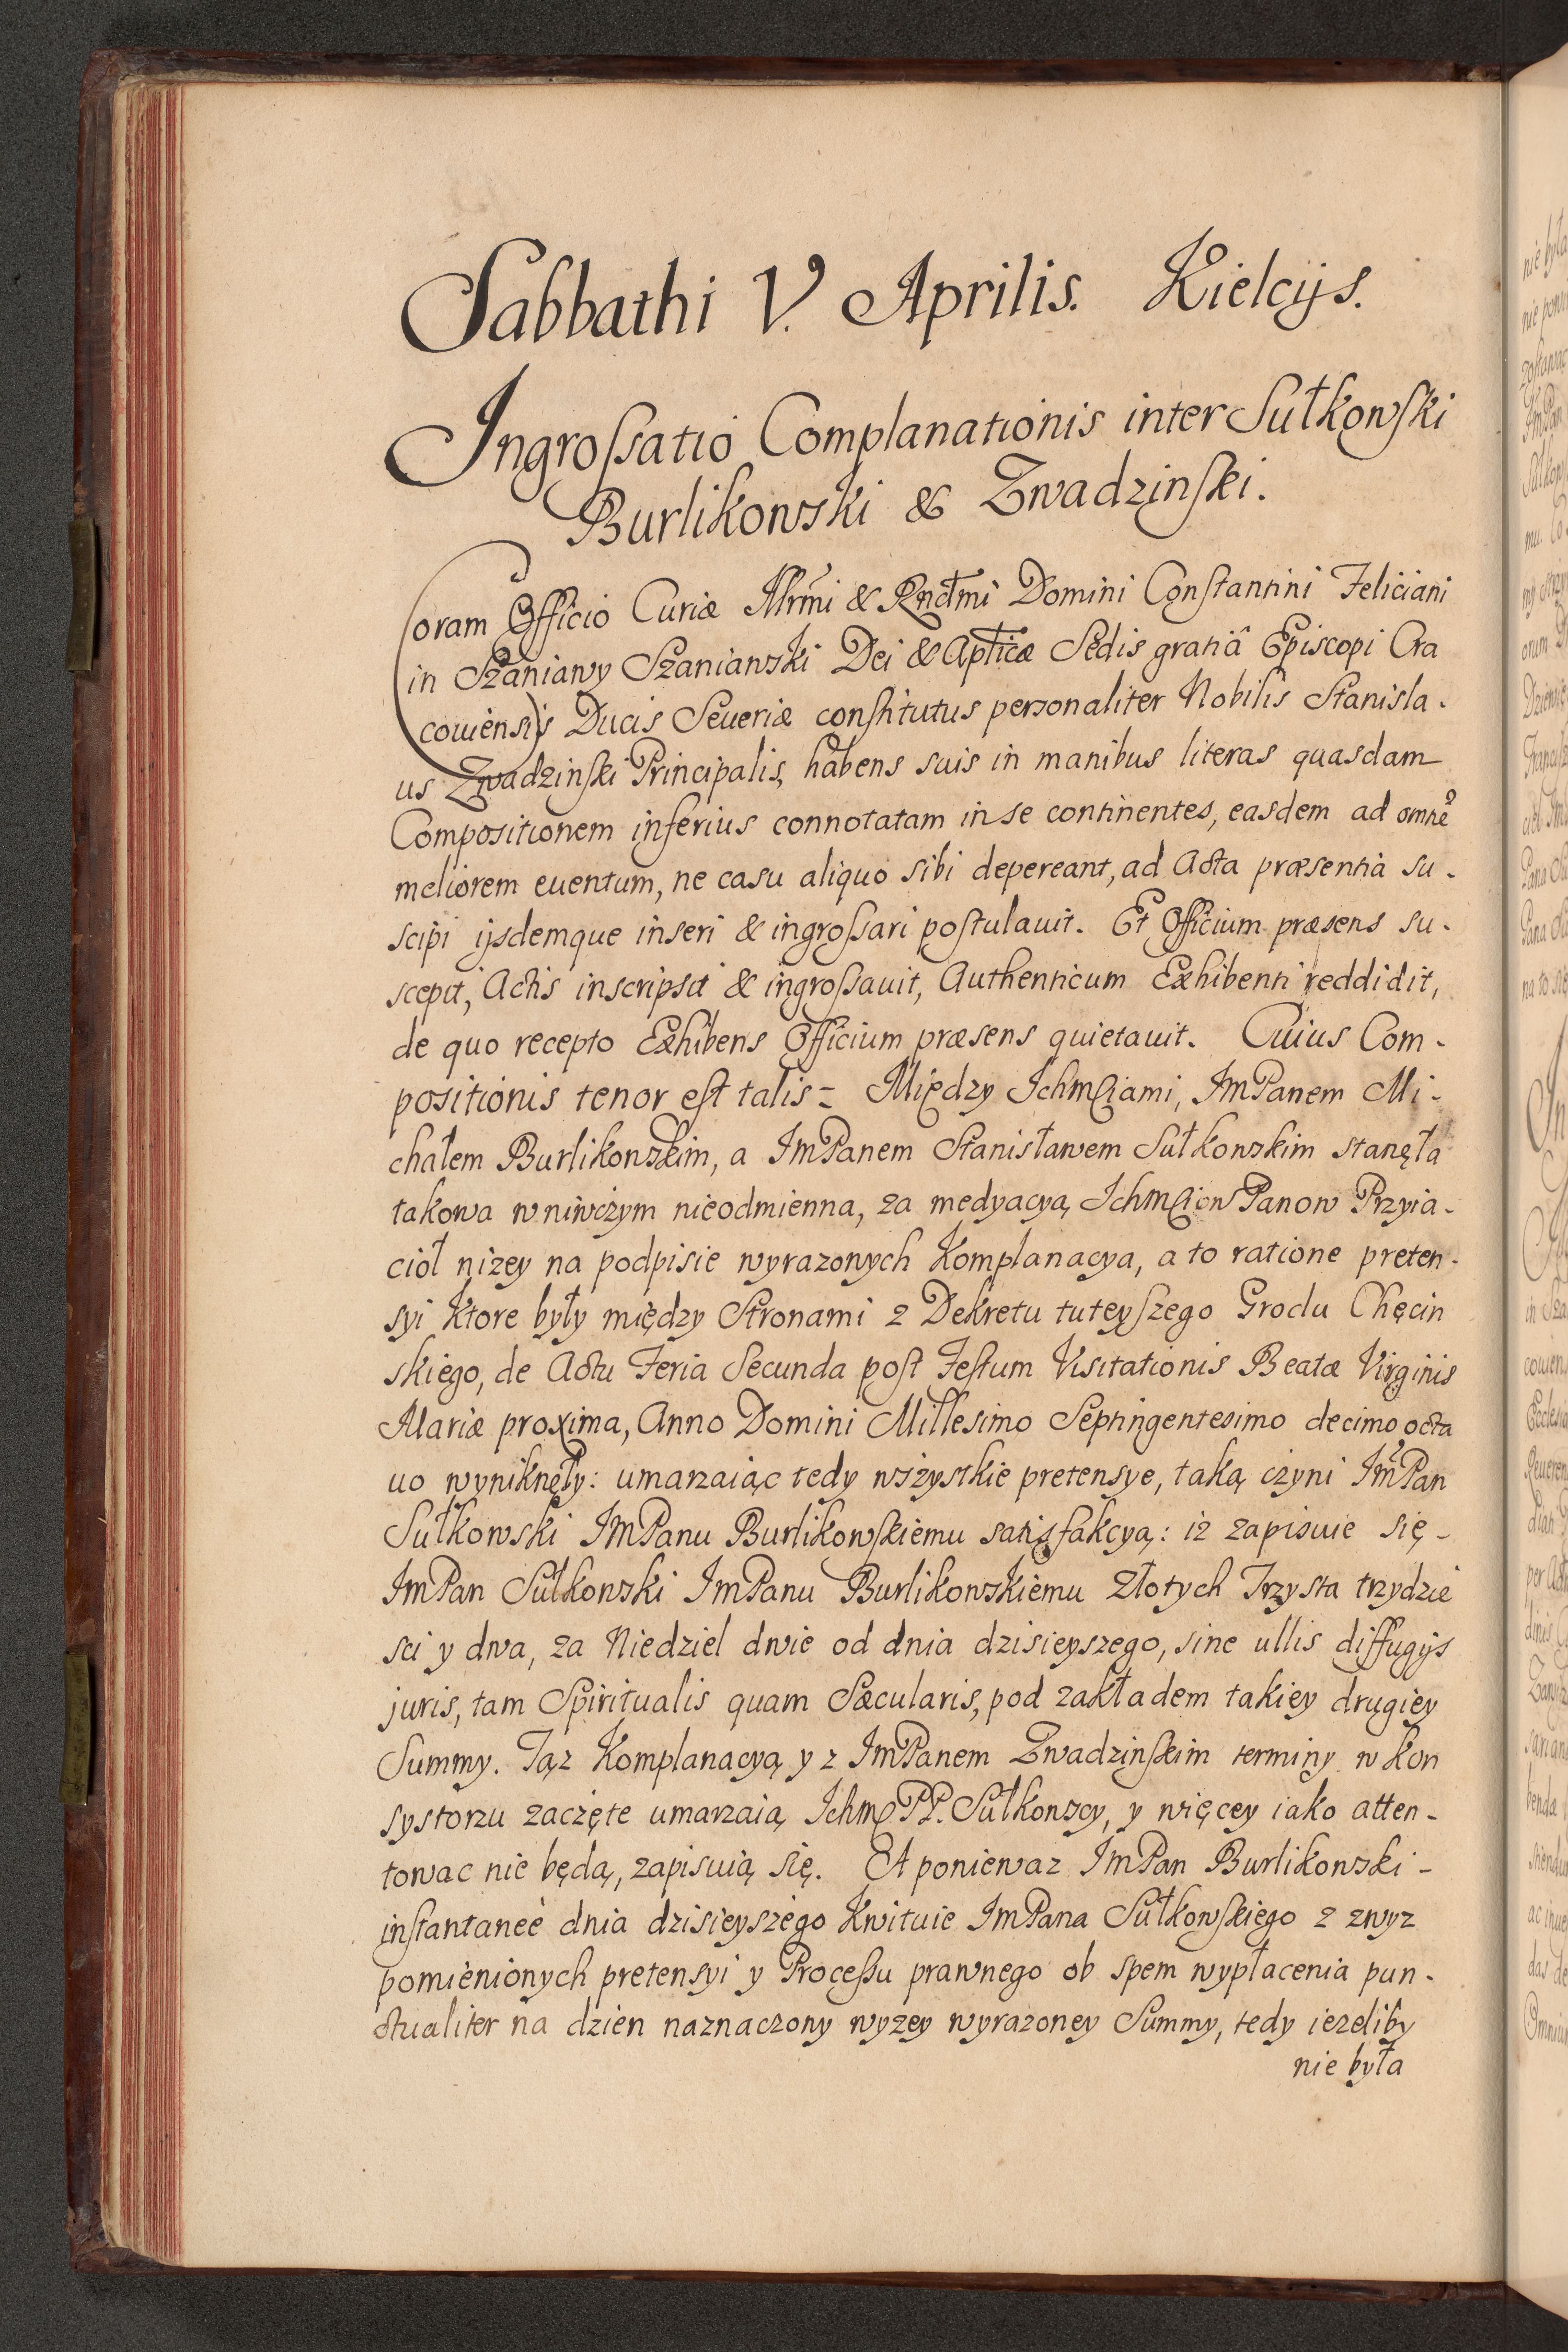 Sabbathi V. Aprilis. Kielcijs.
Ingrossatio Complanationis inter Sułkowski
Burlikowski & Zwadzinski.
Coram Officio Curiæ Illrmi & Rndmi Domini Constantini Feliciani
in Szaniawy Szaniawski Dei & Aplicæ Sedis gratiâ Episcopi Cra
couiensis Ducis Seueriæ constitutus personaliter Nobilis Stanisla-
us Zwadzinski Principalis, habens suis in manibus literas quasdam
Compositionem inferius connotatam in se continentes, easdem ad omne
meliorem euentum, ne casu aliquo sibi depereant, ad Acta præsentia su-
scipi ijsdemque inseri & ingrossari postulauit. Et Officium præsens su-
scepit, Actis inscripsit & ingrossauit, Authenticum Exhibenti reddidit,
de quo recepto Exhibens Officium præsens quietauit. Cuius Com-
positionis tenor est talis = Między Ichmciami, ImPanem Mi-
chałem Burlikowskim, a ImPanem Stanisławem Sułkowskim stanęła
takowa w niwczym nieodmienna, za medyacyą Ichmciow Panow Przyia-
cioł nizey na podpisie wyrazonych Komplanacya, a to ratione preten-
syi ktore były między Stronami z Dekretu tuteyszego Grodu Chęcin
skiego, de Actu Feria Secunda post Festum Visitationis Beatæ Virginis
Mariæ proxima, Anno Domini Millesimo Septingentesimo decimo octa
uo wyniknęły: umarzaiąc tedy wszystkie pretensye, taką czyni ImPan
Sułkowski ImPanu Burlikowskiemu satisfakcyą: iz zapisuie się -
ImPan Sułkowski ImPanu Burlikowskiemu Złotych Trzysta trzydzie
sci y dwa, za Niedziel dwie od dnia dzisieyszego, sine ullis diffugijs
juris, tam Spiritualis quam Sæcularis, pod zakładem takiey drugiey
Summy. Tąz Komplanacyą y z ImPanem Zwadzinskim terminy w Kon
systorzu zaczęte umarzaią Ichm PP. Sułkowscy, y więcey iako atten-
towac nie będą, zapisuią się. A poniewaz ImPan Burlikowski -
instantaneè dnia dzisieyszego Kwituie ImPana Sułkowskiego z zwyz
pomienionych pretensyi y Processu prawnego ob spem wypłacenia pun-
ctualiter na dzien naznaczony wyzey wyrazoney Summy, tedy iezeliby
nie była